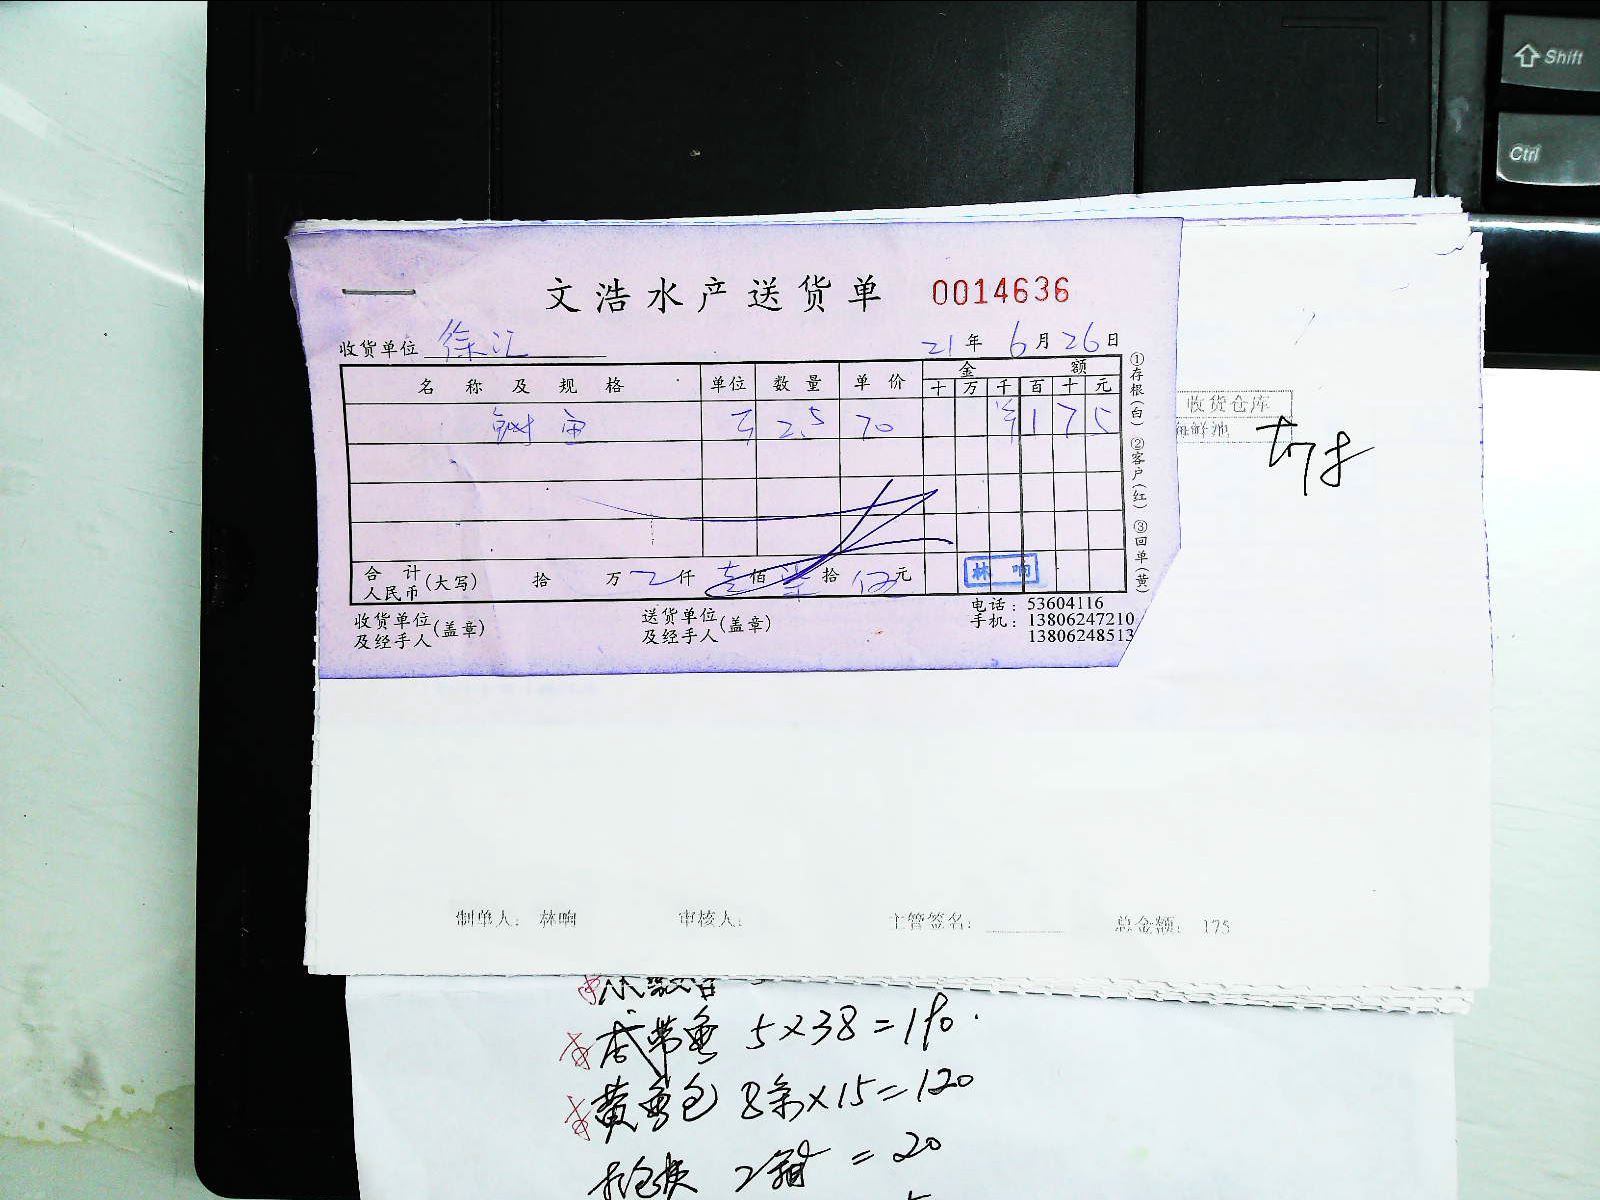 Shift
Ctrl
文浩水产送货单 0014636
收货单位 徐汇 21年6月26日
名称及规格 单位 数量 单价 金额
十 万 千 百 十 元
2.5 70 ¥175
合计人民币(大写) 拾 万 仟 壹佰柒拾伍元
林响
①存根(白)②客户(红)③回单(黄)
收货单位及经手人(盖章) 送货单位及经手人(盖章)
电话：53604116
手机：13806247210
13806248513
收货仓库
制单人： 林响 审核人： 主管签名： 总金额： 175
带鱼 5×38=190.
黄鱼包 8条×15=120
2箱 =20